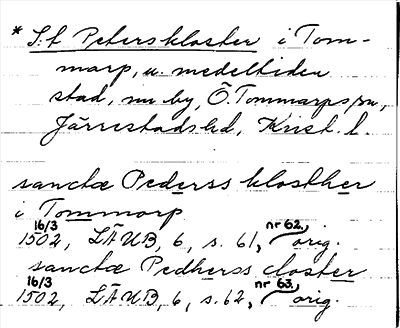 * S:t Peters kloster i Tom-
marp, u. medeltiden
stad, nu by, Ö. Tommarps sn,
Järrestads hd, Krist. l.
sanctæ Pederss klosther
i Tommarp
16/3 1502, LÄUB, 6, s. 61, nr 62. orig.
sanctæ Pedherss closter
16/3 1502, LÄUB, 6, s. 62, nr 63. orig.